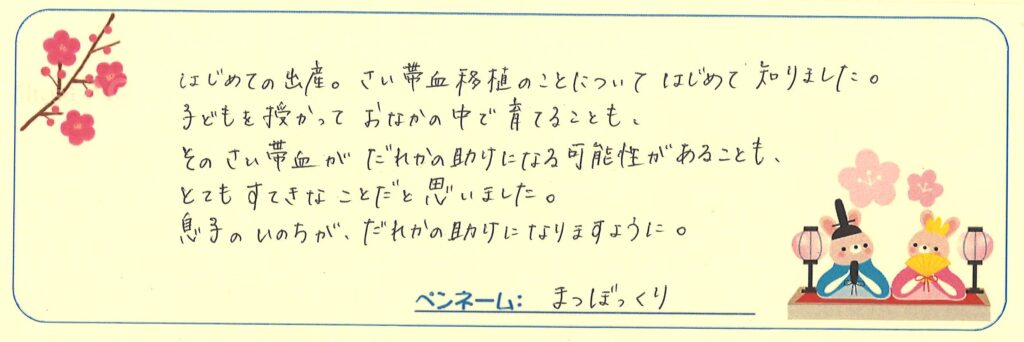 はじめての出産。さい帯血移植のことについてはじめて知りました。
子どもを授かっておなかの中で育てることも、
そのさい帯血がだれかの助けになる可能性があることも、
とてもすてきなことだと思いました。
息子のいのちが、だれかの助けになりますように。
ペンネーム: まつぼっくり